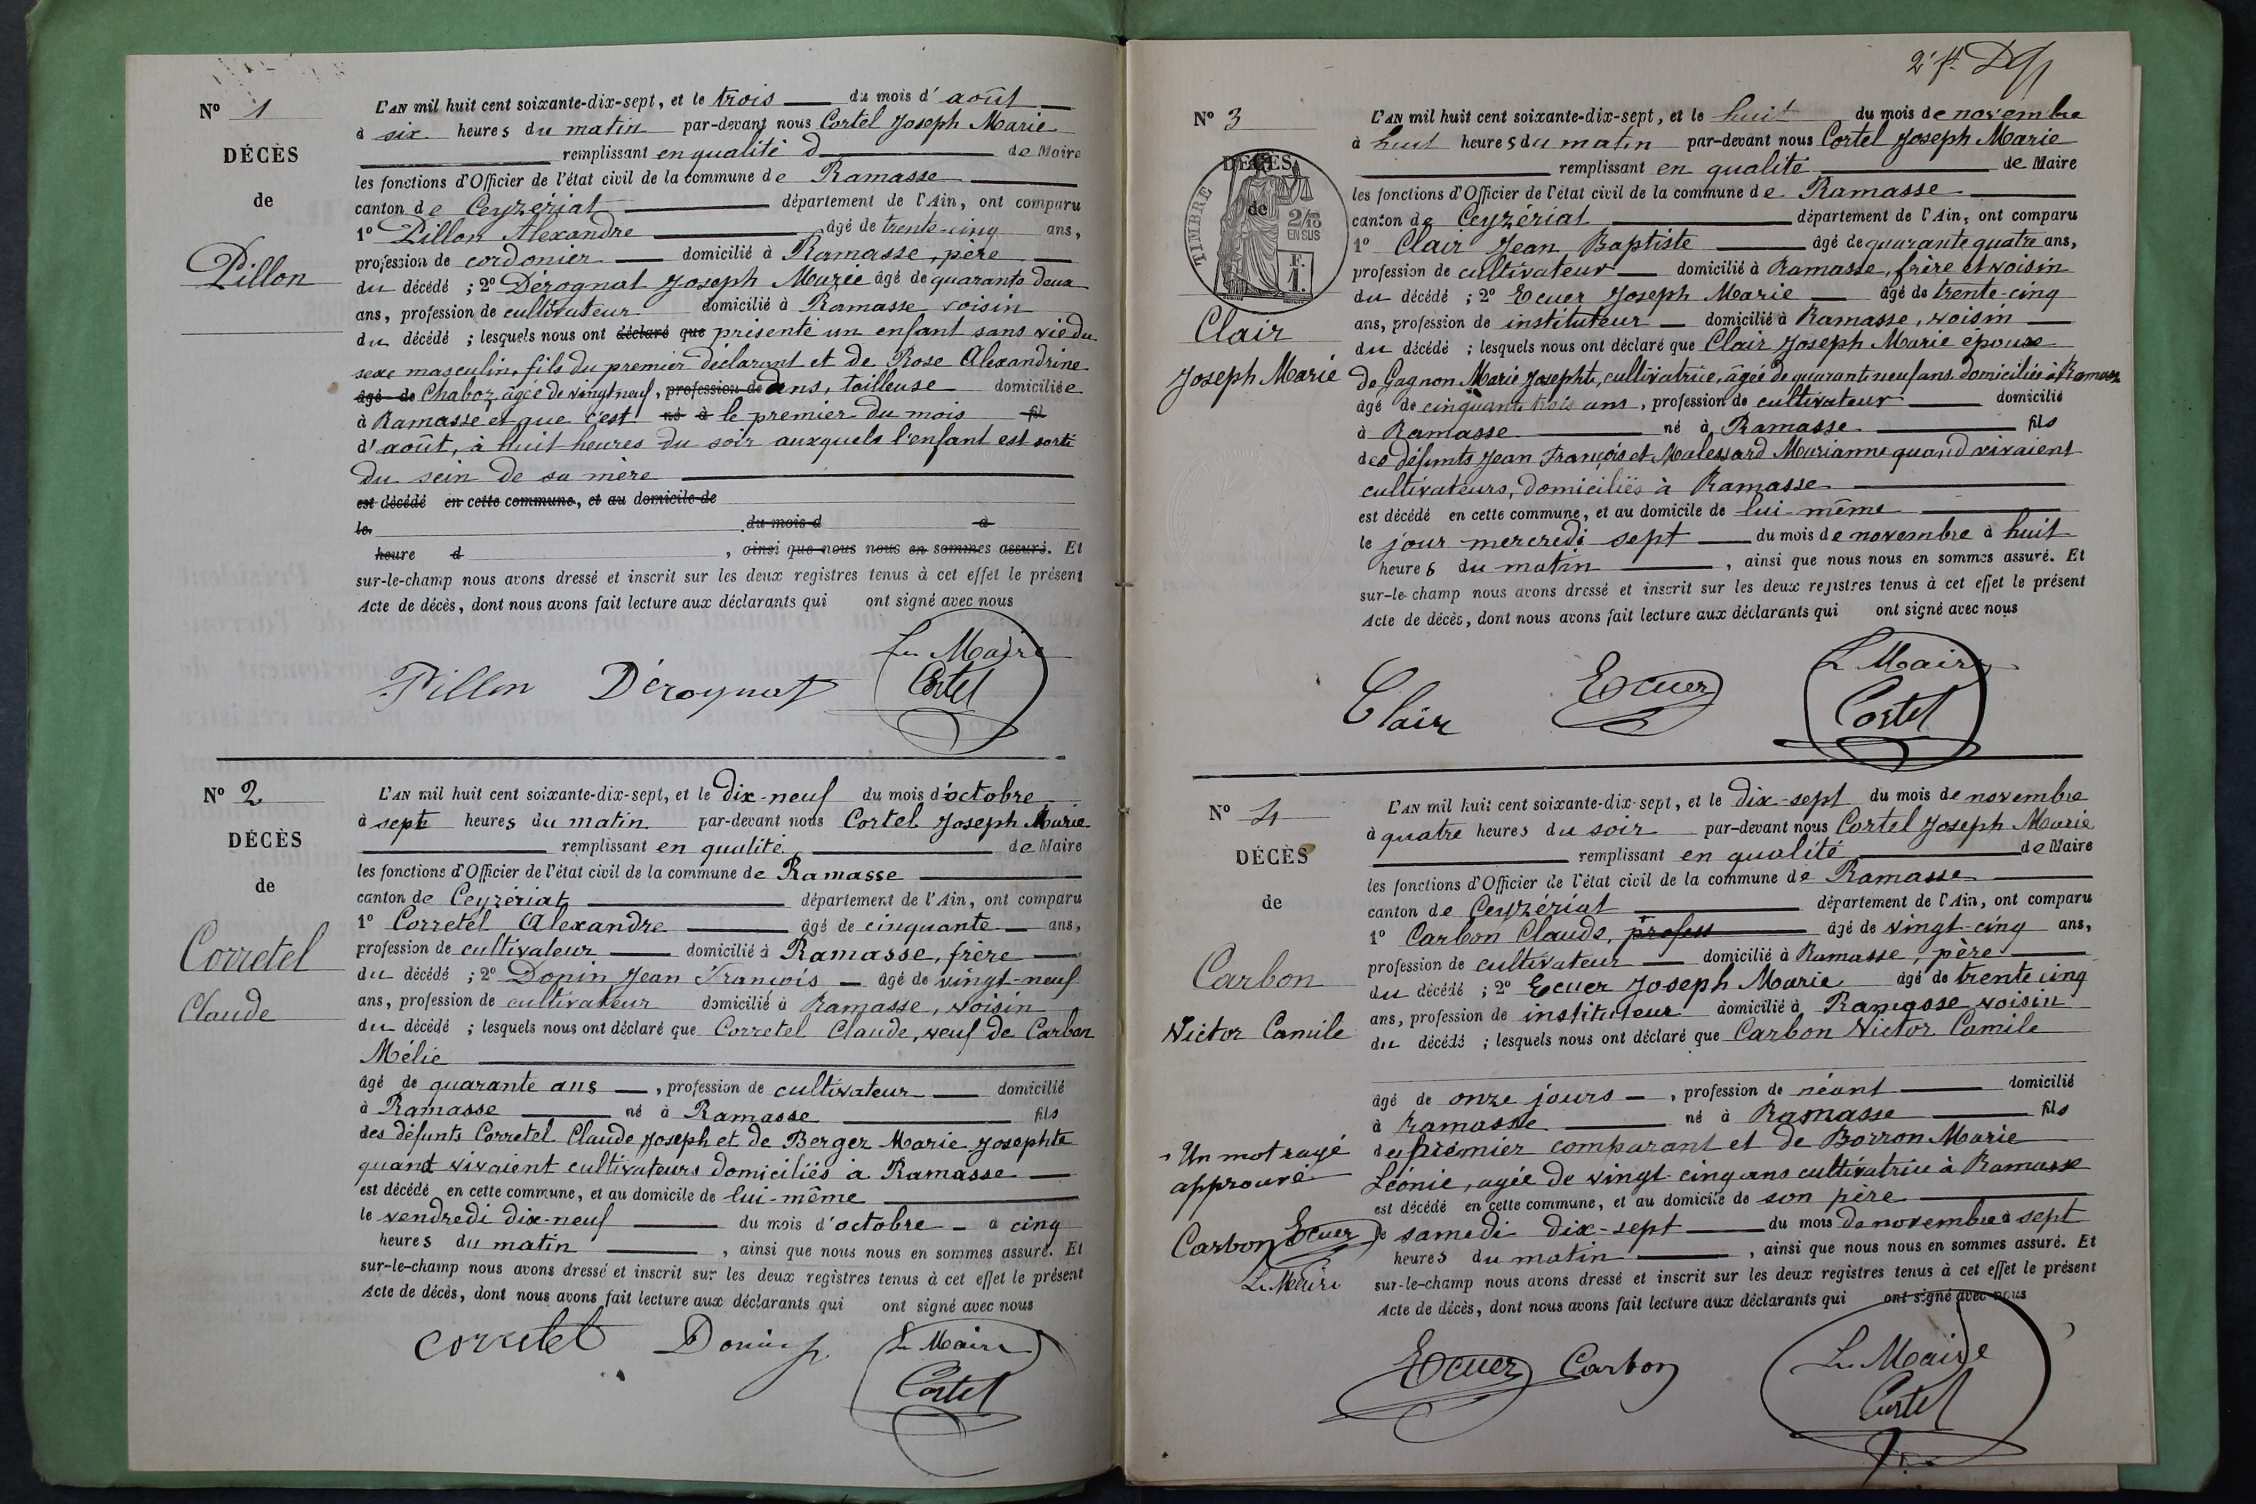 Nº 1
DÉCÈS
de
Pillon
L'AN mil huit cent soixante-dix-sept, et le trois du mois d'août
à six heures du matin par-devant nous Cortel Joseph Marie
remplissant en qualité d de Maire
les fonctions d'Officier de l'état civil de la commune de Ramasse
canton de Ceyzériat département de l'Ain, ont comparu
1º Pillon Alexandre âgé de trente-cinq ans,
profession de cordonier domicilié à Ramasse, père
du décédé ; 2º Dérognat Joseph Marie âgé de quarante deux
ans, profession de cultivateur domicilié à Ramasse voisin
du décédé ; lesquels nous ont déclaré que présenté un enfant sans vie du
sexe masculin, fils du premier déclarant et de Rose Alexandrine
âgé de Chaboz âgée de vingt neuf, profession de ans, tailleuse domiciliée
à Ramasse et que c'est né à le premier du mois fil
d'août, à huit heures du soir auxquels l'enfant est sorti
du sein de sa mère
est décédé en cette commune, et au domicile de
le du mois d à
heure d , ainsi que nous nous en sommes assuré. Et
sur-le-champ nous avons dressé et inscrit sur les deux registres tenus à cet effet le présent
Acte de décès, dont nous avons fait lecture aux déclarants qui ont signé avec nous
Le Maire
Pillon Dérognat Cortel
Nº 2
DÉCÈS
de
Corretel
Claude
L'AN mil huit cent soixante-dix-sept, et le dix-neuf du mois d'octobre
à sept heures du matin par-devant nous Cortel Joseph Marie
remplissant en qualité de Maire
les fonctions d'Officier de l'état civil de la commune de Ramasse
canton de Ceyzériat département de l'Ain, ont comparu
1º Corretel Alexandre âgé de cinquante ans,
profession de cultivateur domicilié à Ramasse, frère
du décédé ; 2º Donin Jean François âgé de vingt-neuf
ans, profession de cultivateur domicilié à Ramasse, voisin
du décédé ; lesquels nous ont déclaré que Corretel Claude, veuf de Carbon
Mélie
âgé de quarante ans , profession de cultivateur domicilié
à Ramasse né à Ramasse fils
des défunts Corretel Claude Joseph et de Berger Marie Josephte
quand vivaient cultivateurs domiciliés à Ramasse
est décédé en cette commune, et au domicile de lui-même
le vendredi dix-neuf du mois d'octobre à cinq
heures du matin , ainsi que nous nous en sommes assuré. Et
sur-le-champ nous avons dressé et inscrit sur les deux registres tenus à cet effet le présent
Acte de décès, dont nous avons fait lecture aux déclarants qui ont signé avec nous
Corretel Donin Le Maire
Cortel
Nº 3
DÉCÈS
de
TIMBRE
2/10
EN SUS
F.
1.
Clair
Joseph Marie
L'AN mil huit cent soixante-dix-sept, et le huit du mois de novembre
à huit heures du matin par-devant nous Cortel Joseph Marie
remplissant en qualité de Maire
les fonctions d'Officier de l'état civil de la commune de Ramasse
canton de Ceyzériat département de l'Ain, ont comparu
1º Clair Jean Baptiste âgé de quarante quatre ans,
profession de cultivateur domicilié à Ramasse, frère et voisin
du décédé ; 2º Ecuer Joseph Marie âgé de trente-cinq
ans, profession de instituteur domicilié à Ramasse, voisin
du décédé ; lesquels nous ont déclaré que Clair Joseph Marie époux
de Gagnon Marie Josephte, cultivatrice, âgée de quarante neuf ans domiciliée à Ramasse
âgé de cinquante trois ans, profession de cultivateur domicilié
à Ramasse né à Ramasse fils
des défunts Jean François et Malessard Marianne quand vivaient
cultivateurs, domiciliés à Ramasse
est décédé en cette commune, et au domicile de lui-même
le jour mercredi sept du mois de novembre à huit
heures du matin , ainsi que nous nous en sommes assuré. Et
sur-le-champ nous avons dressé et inscrit sur les deux registres tenus à cet effet le présent
Acte de décès, dont nous avons fait lecture aux déclarants qui ont signé avec nous
Clair Ecuer Le Maire
Cortel
Nº 4
DÉCÈS
de
Carbon
Victor Camile
Un mot rayé
approuvé
Carbon Ecuer
Le Maire
L'AN mil huit cent soixante-dix-sept, et le dix-sept du mois de novembre
à quatre heures du soir par-devant nous Cortel Joseph Marie
remplissant en qualité de Maire
les fonctions d'Officier de l'état civil de la commune de Ramasse
canton de Ceyzériat département de l'Ain, ont comparu
1º Carbon Claude, profess âgé de vingt-cinq ans,
profession de cultivateur domicilié à Ramasse, père
du décédé ; 2º Ecuer Joseph Marie âgé de trente cinq
ans, profession de instituteur domicilié à Ramasse voisin
du décédé ; lesquels nous ont déclaré que Carbon Victor Camile
âgé de onze jours , profession de néant domicilié
à Ramasse né à Ramasse fils
du premier comparant et de Borron Marie
Léonie, agée de vingt cinq ans cultivatrice à Ramasse
est décédé en cette commune, et au domicile de son père
le samedi dix-sept du mois de novembre à sept
heures du matin , ainsi que nous nous en sommes assuré. Et
sur-le-champ nous avons dressé et inscrit sur les deux registres tenus à cet effet le présent
Acte de décès, dont nous avons fait lecture aux déclarants qui ont signé avec nous
Ecuer Carbon Le Maire
Cortel